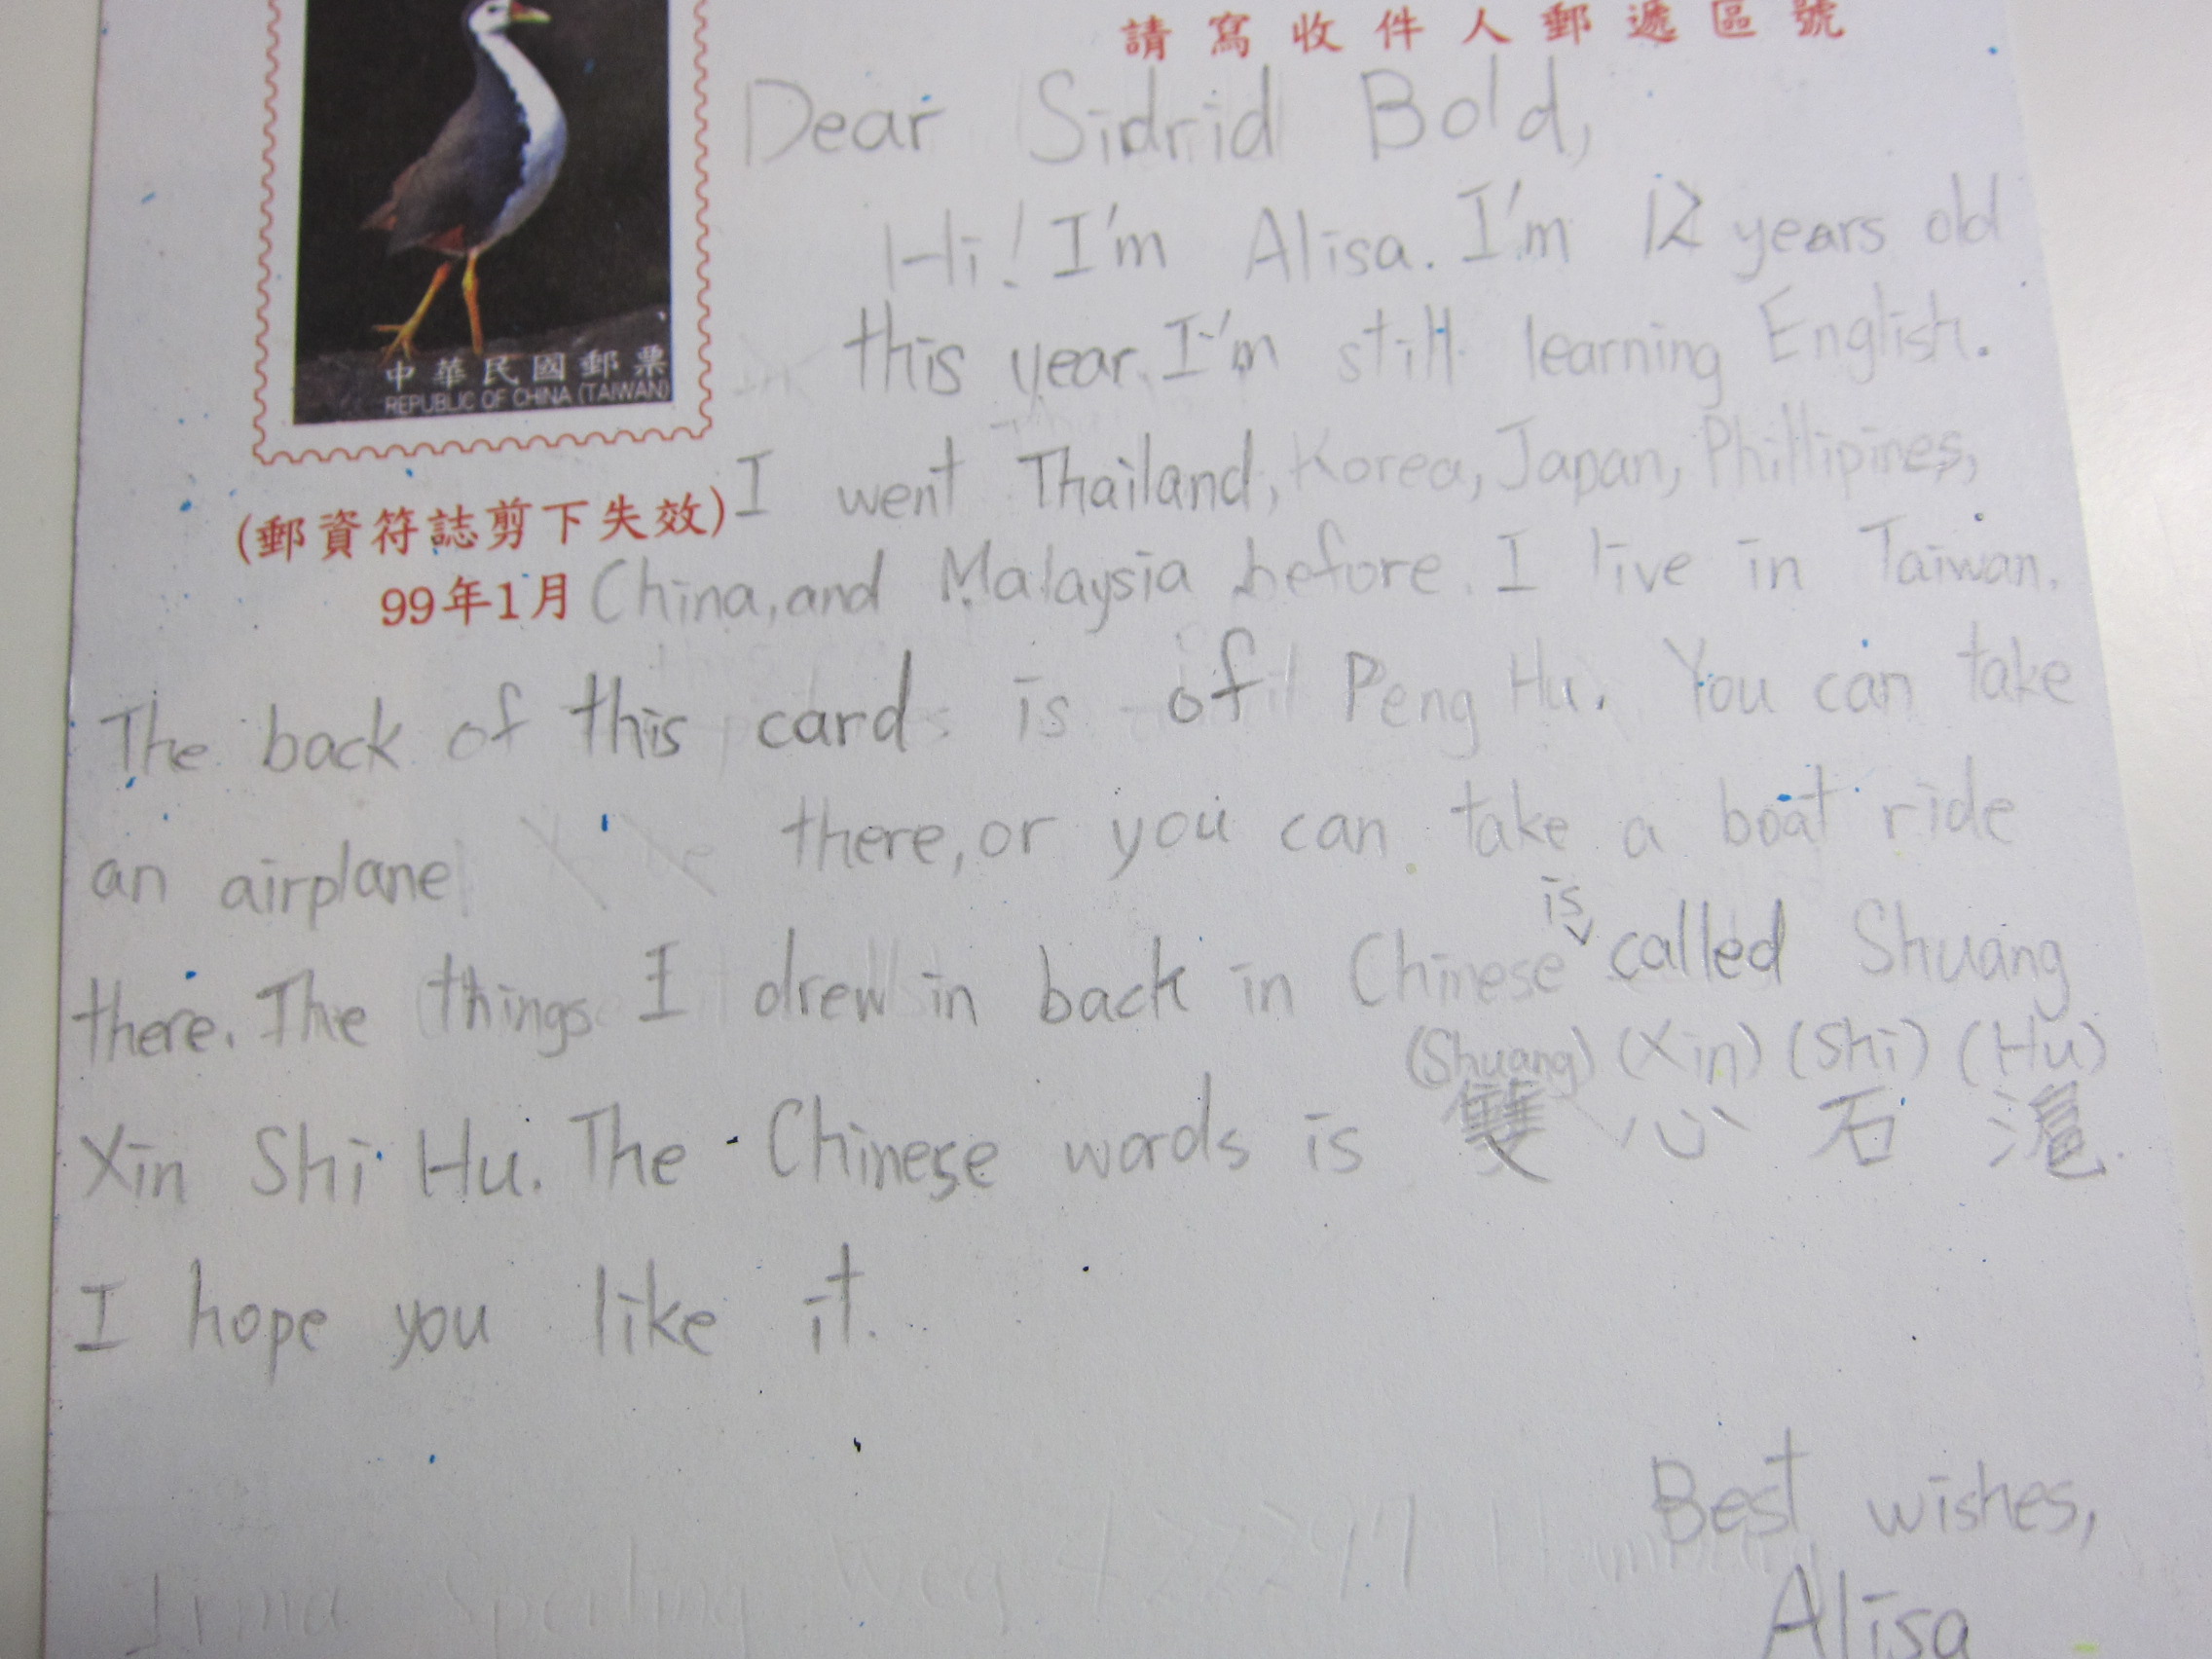 請寫收件人郵遞區號
中華民國郵票
REPUBLIC OF CHINA (TAIWAN)
(郵資符誌剪下失效)
99年1月
Dear Sidrid Bold,
Hi! I'm Alisa. I'm 12 years old
this year. I'm still learning English.
I went Thailand, Korea, Japan, Phillipines,
China, and Malaysia before. I live in Taiwan.
The back of this card is of Peng Hu. You can take
an airplane there, or you can take a boat ride
there. The things I drew in back in Chinese is called Shuang
(Shuang) (Xin) (Shi) (Hu)
Xin Shi Hu. The Chinese words is 雙心石滬.
I hope you like it.
Best wishes,
Alisa
Irma Sperling Weg 4 22297